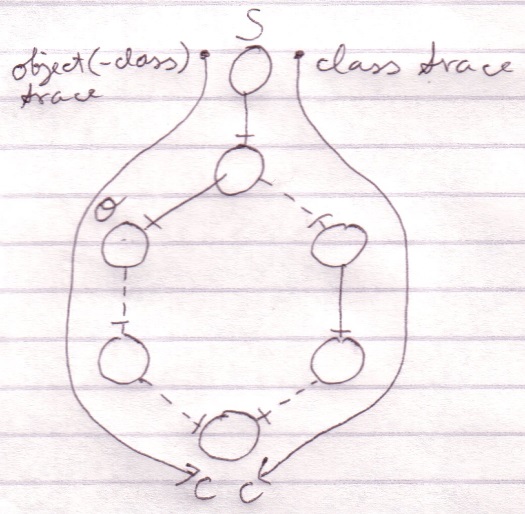 S
object(-class)
trace
class trace
O
C C